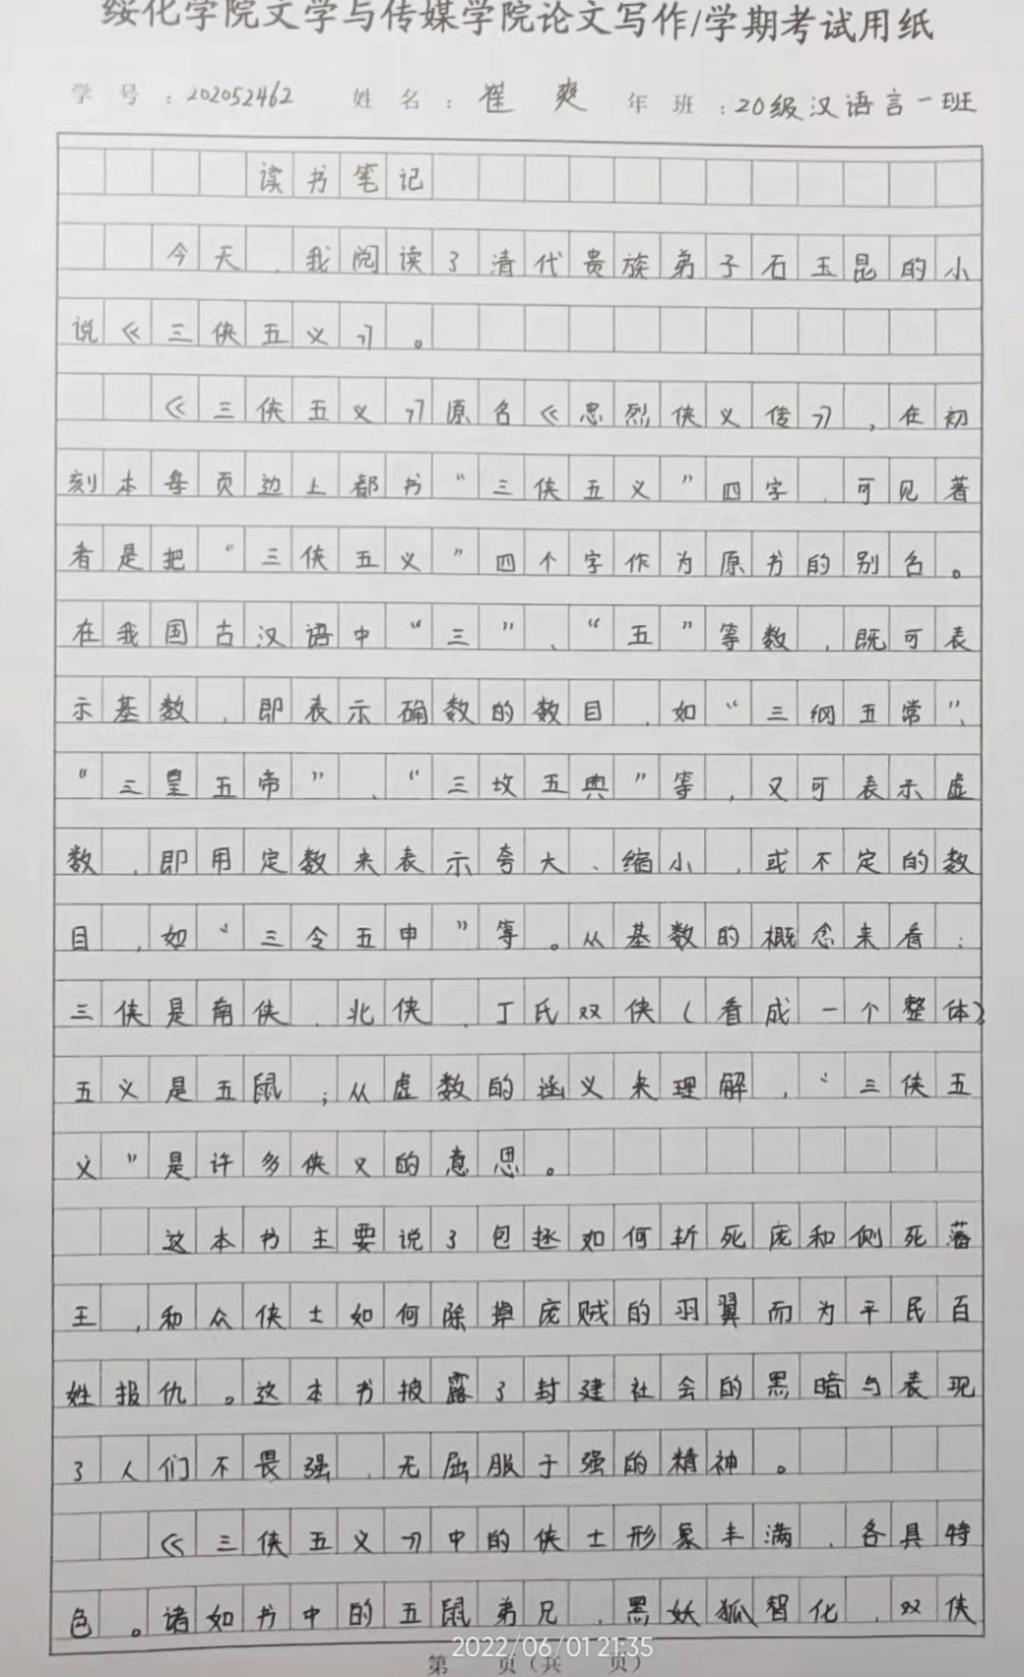 绥化学院文学与传媒学院论文写作/学期考试用纸
学号：202052462 姓名：崔爽 年班：20级汉语言一班
读书笔记
今天，我阅读了清代贵族弟子石玉昆的小
说《三侠五义》。
《三侠五义》原名《忠烈侠义传》，在初
刻本每页边上都书“三侠五义”四字，可见著
者是把“三侠五义”四个字作为原书的别名。
在我国古汉语中“三”、“五”等数，既可表
示基数，即表示确数的数目，如“三纲五常”、
“三皇五帝”、“三坟五典”等，又可表示虚
数，即用定数来表示夸大、缩小，或不定的数
目，如“三令五申”等。从基数的概念来看：
三侠是南侠、北侠、丁氏双侠（看成一个整体）
五义是五鼠；从虚数的涵义来理解，“三侠五
义”是许多侠义的意思。
这本书主要说了包拯如何斩死庞和侧死藩
王，和众侠士如何除掉庞贼的羽翼而为平民百
姓报仇。这本书披露了封建社会的黑暗与表现
了人们不畏强，无屈服于强的精神。
《三侠五义》中的侠士形象丰满，各具特
色。诸如书中的五鼠弟兄，黑妖狐智化，双侠
2022/06/01 21:35
第 页（共 页）